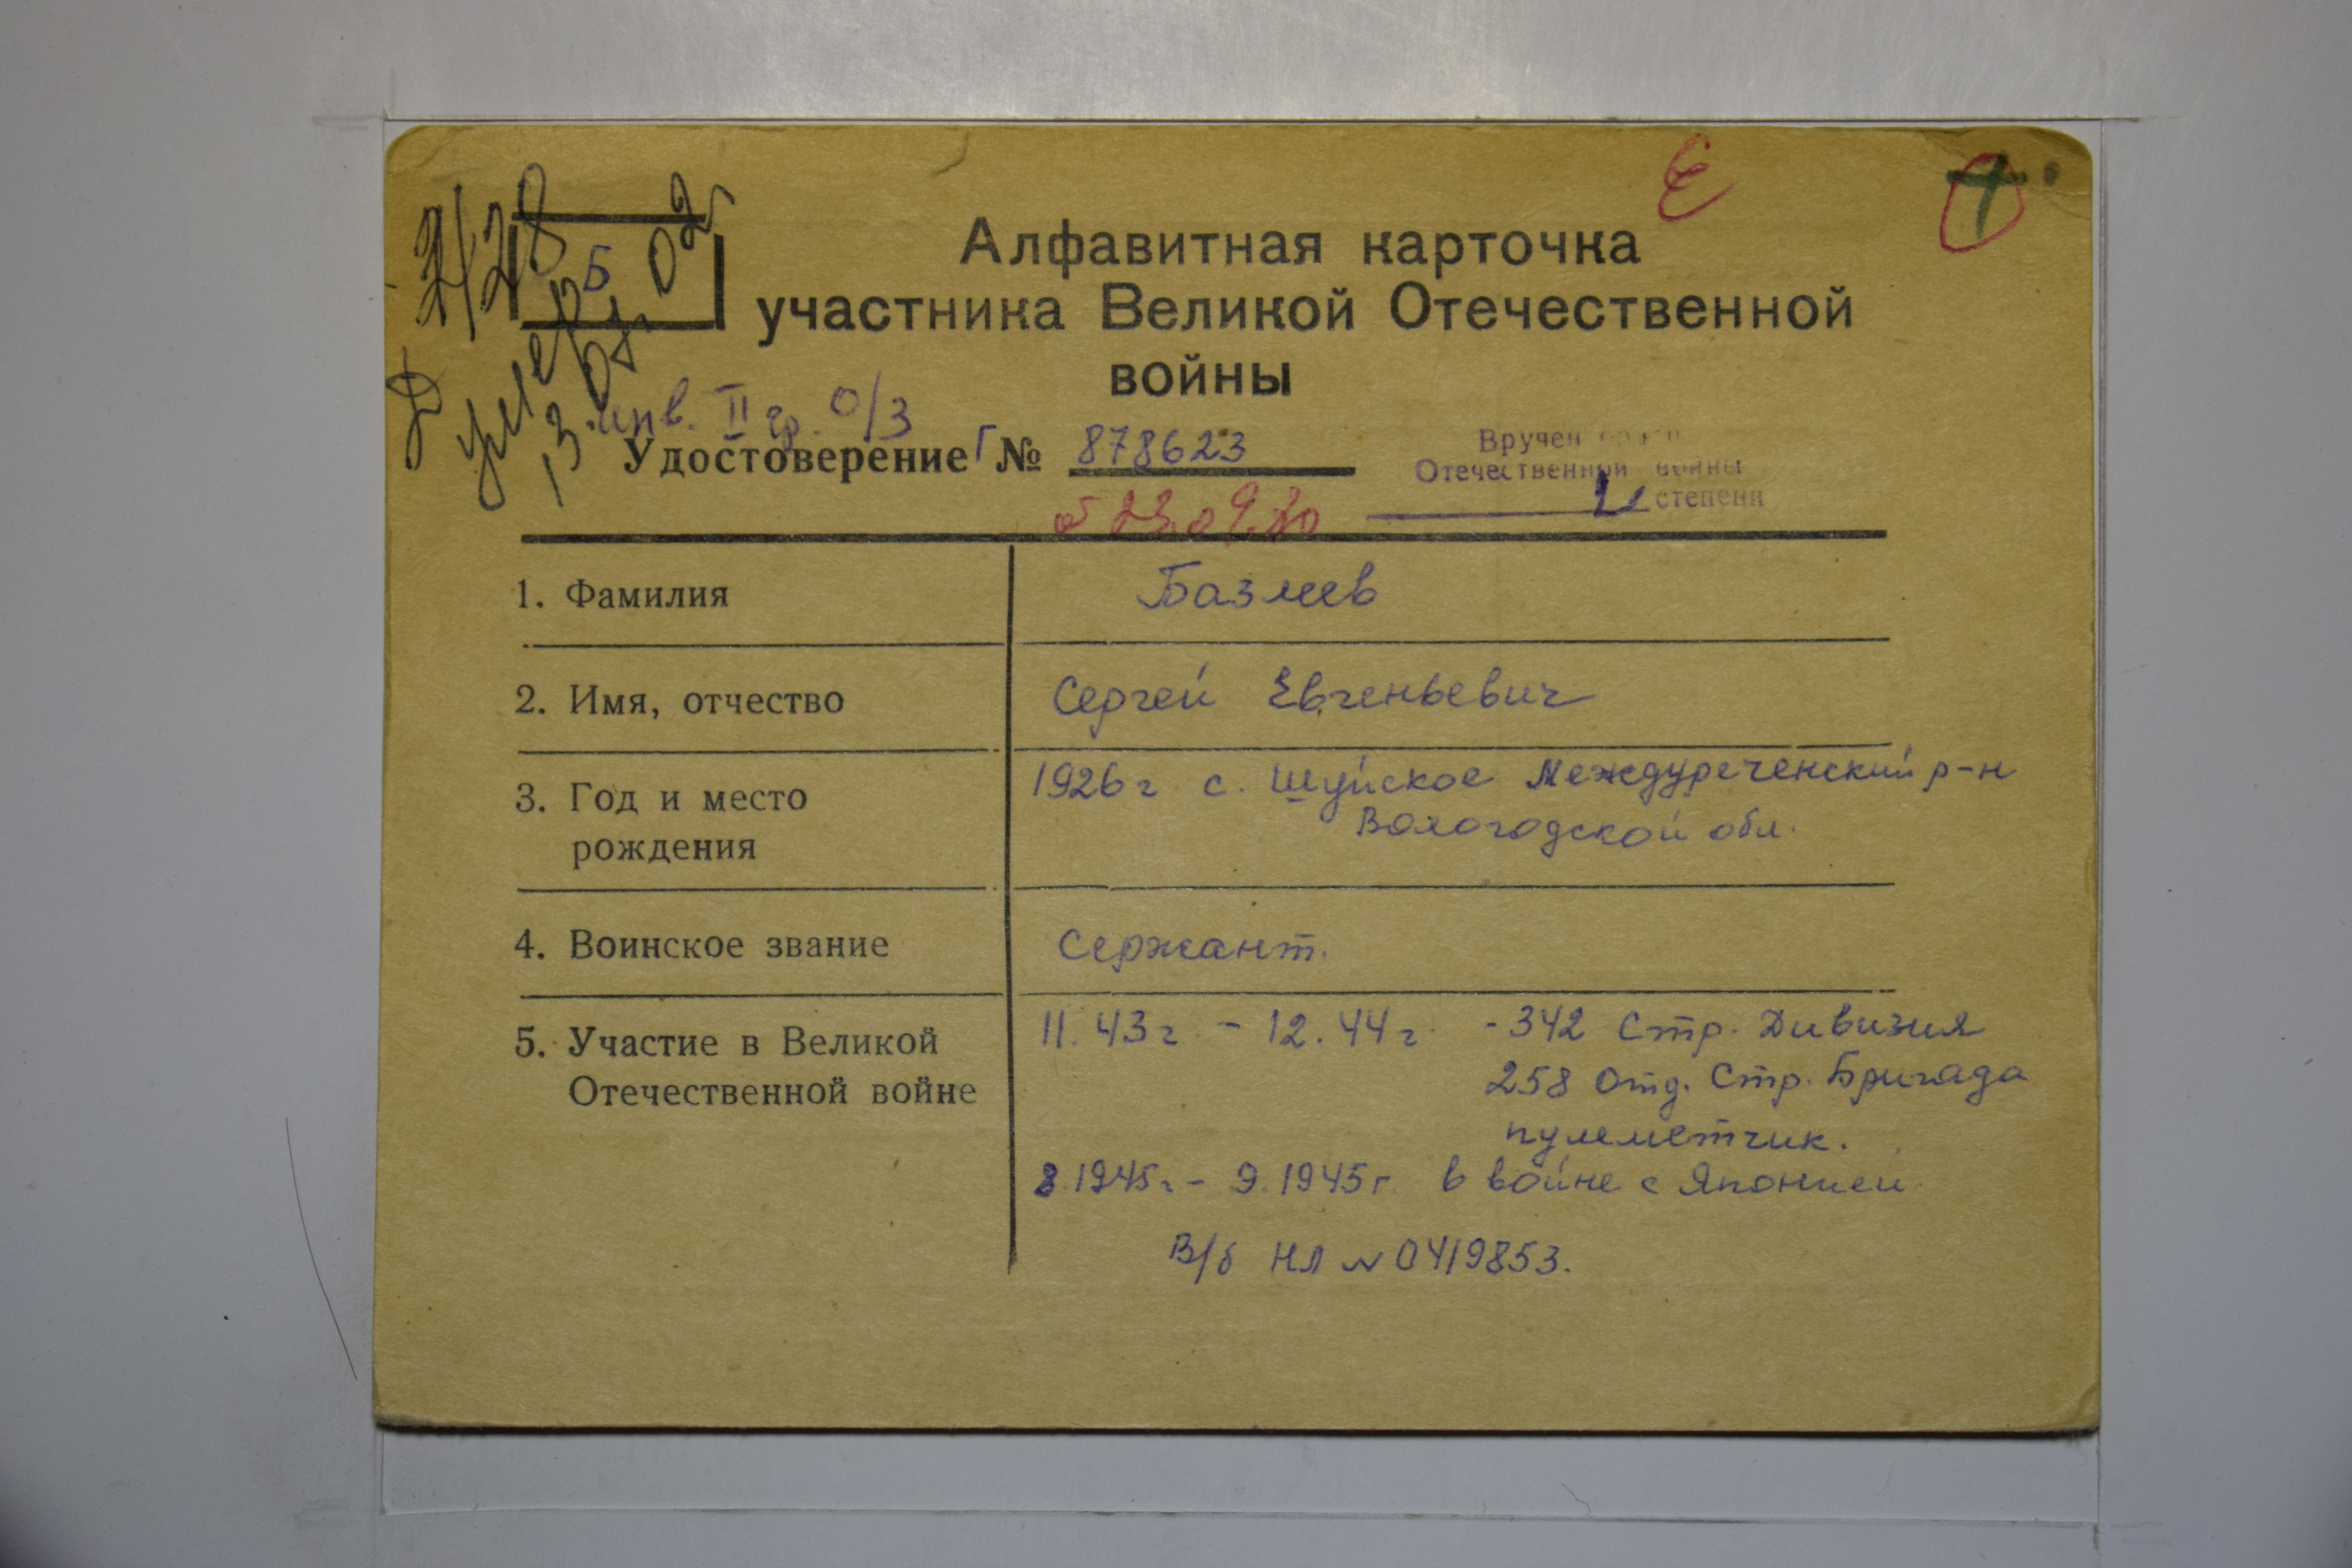 Д 2/28
Б
умер
13.07.02г
Є
Алфавитная карточка
участника Великой Отечественной
войны
инв. II гр. О/З
Удостоверение Г № 878623
Вручен орден
Отечественной войны
II степени
от 23.09.80
1. Фамилия
Базлеев
2. Имя, отчество
Сергей Евгеньевич
3. Год и место
рождения
1926 г. с. Шуйское Междуреченский р-н
Вологодской обл.
4. Воинское звание
Сержант.
5. Участие в Великой
Отечественной войне
11.43 г. - 12.44 г. - 342 Стр. Дивизия
258 Отд. Стр. Бригада
пулеметчик.
8.1945 г. - 9.1945 г. в войне с Японией
В/б НЛ № 0419853.